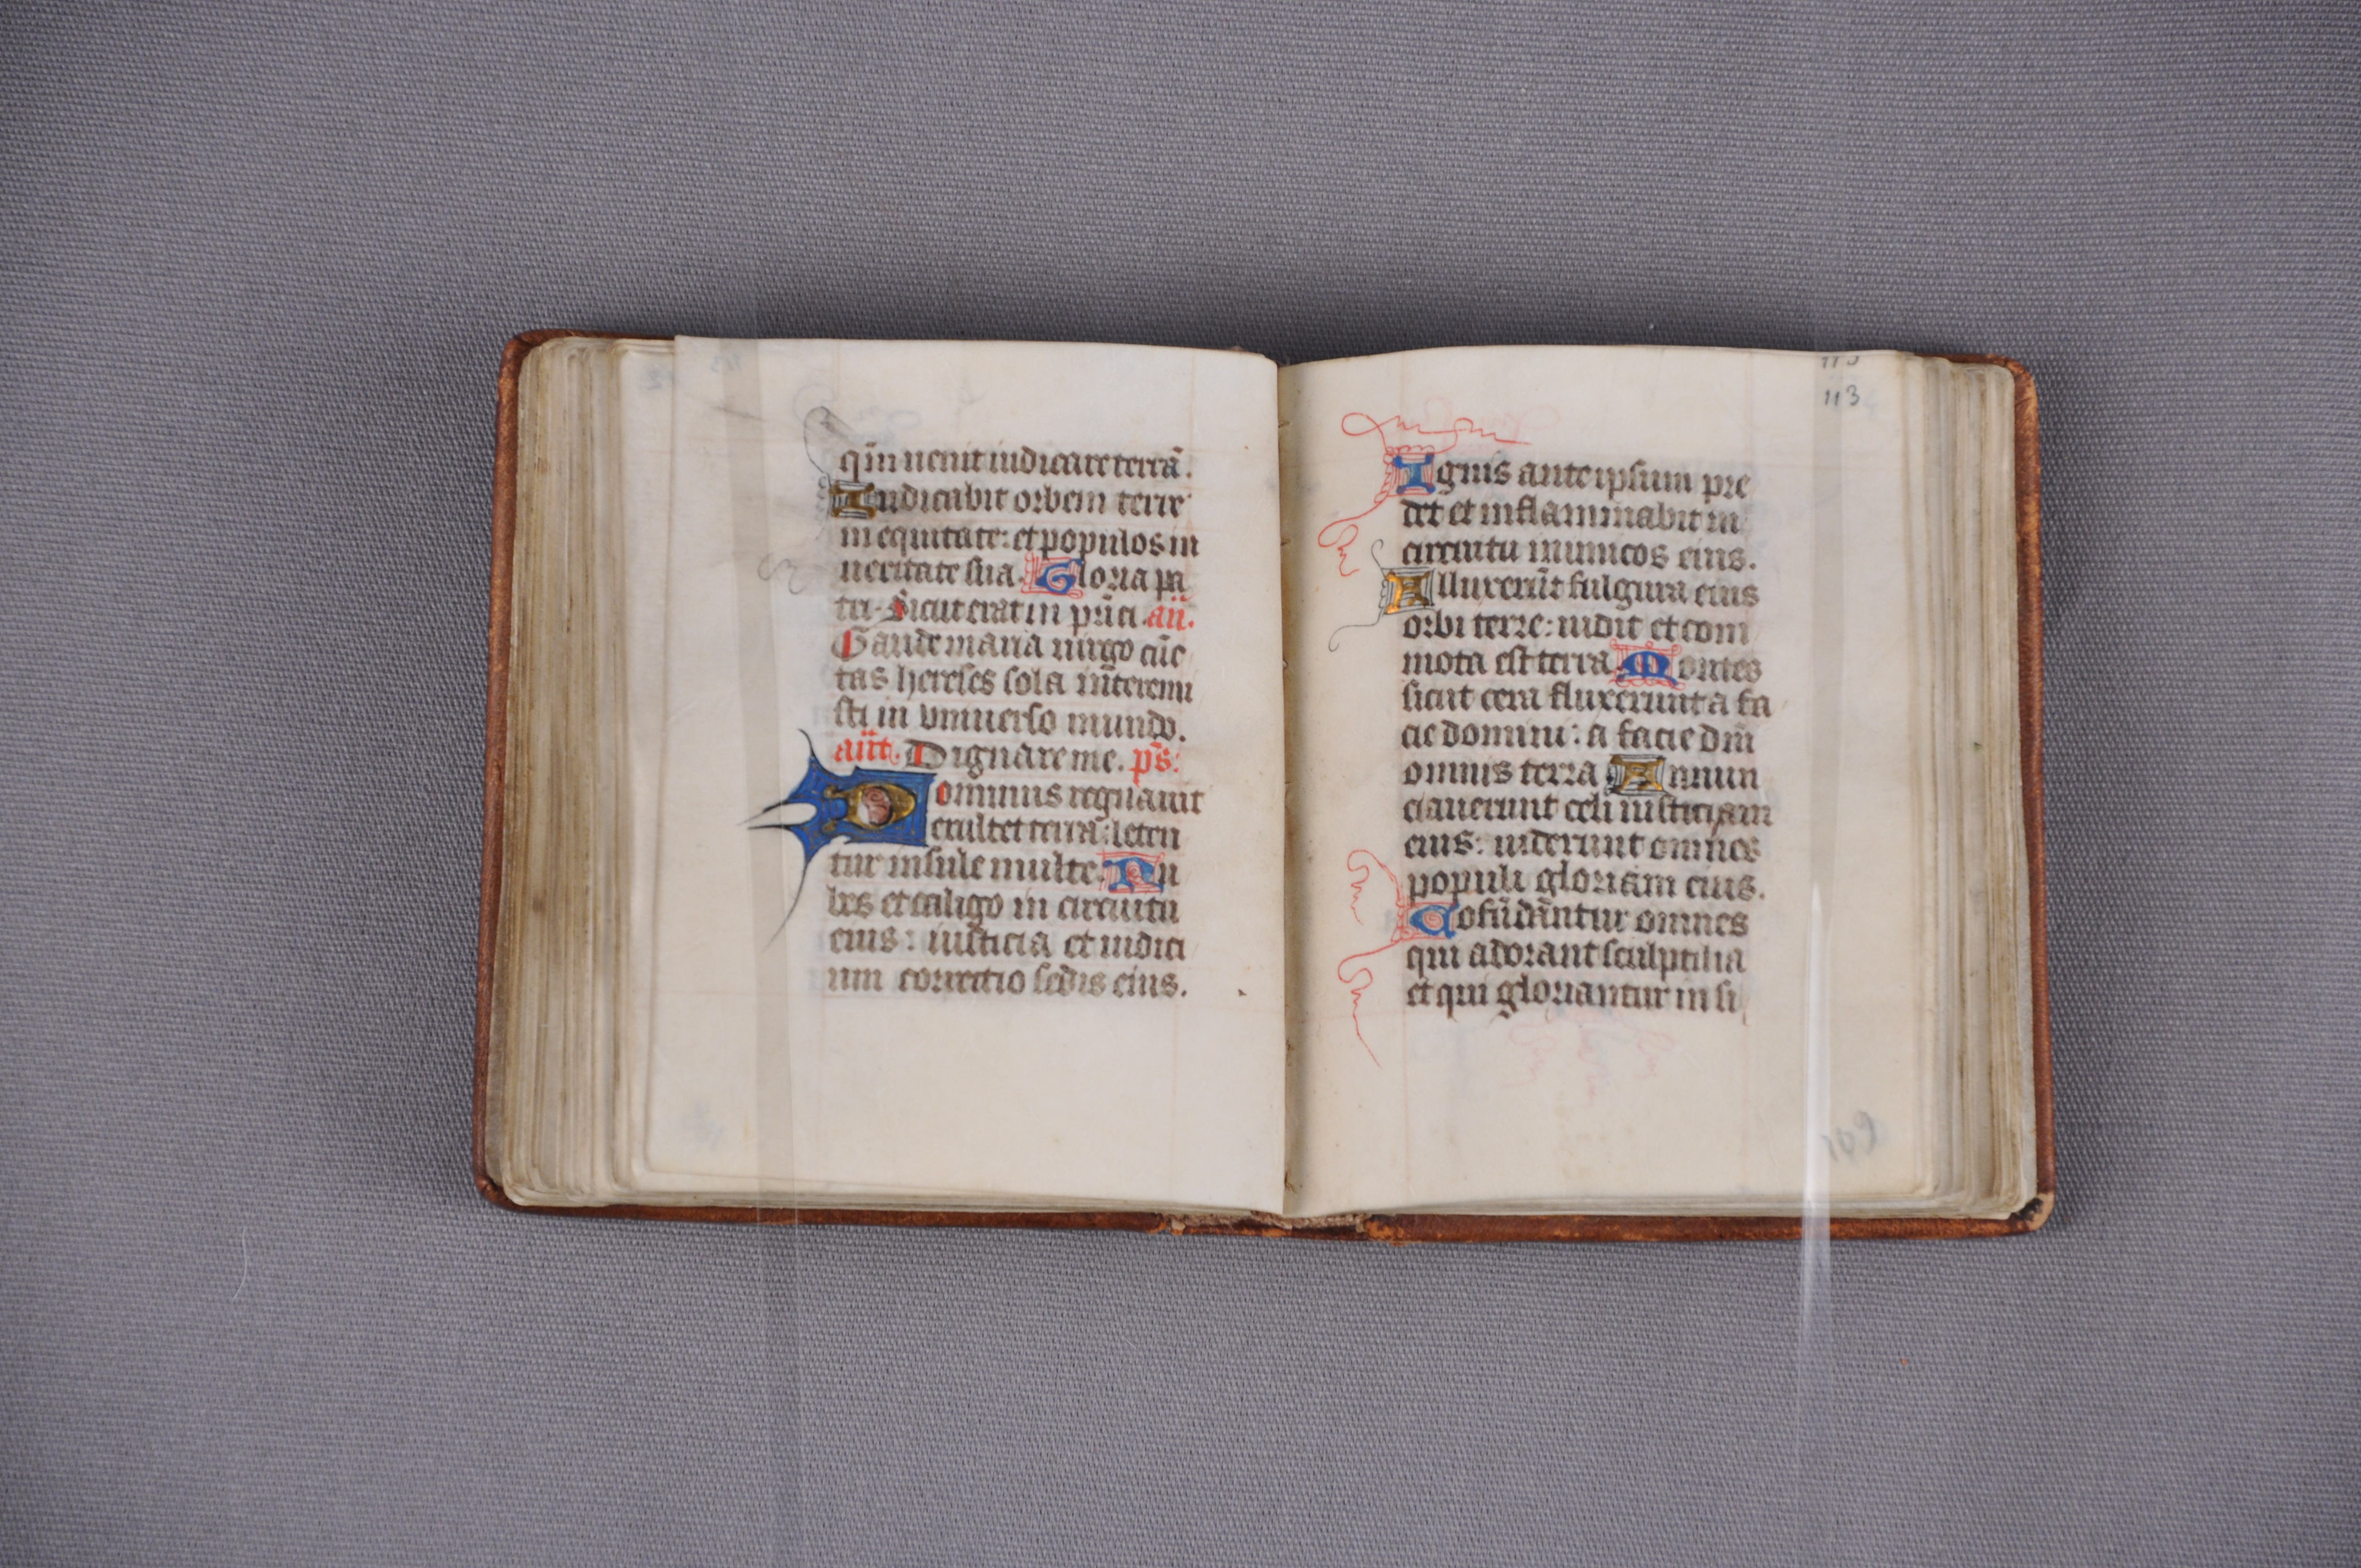 qm̄ uenit iudicare terrā.
Iudicabit orbem terre
in equitate: et populos in
ueritate sua. Gloria pa
tri. Sicut erat in prīci. añ.
Gaude maria uirgo cūc
tas hereses sola interemi
sti in vniuerso mundo.
añt. Dignare me. ps̄:
Dominus regnauit
exultet terra: leten
tur insule multe. Nu
bes et caligo in circuitu
eius: iusticia et iudici
um correctio sedis eius.
113
113
Ignis ante ipsum pre
det et inflammabit in
circuitu inimicos eius.
Alluxerūt fulgura eius
orbi terre: uidit et com
mota est terra. Montes
sicut cera fluxerunt a fa
cie domini: a facie dn̄i
omnis terra. Annun
ciauerunt celi iusticiam
eius: uiderunt omnes
populi gloriam eius.
Cofūdāntur omnes
qui adorant sculptilia
et qui gloriantur in si